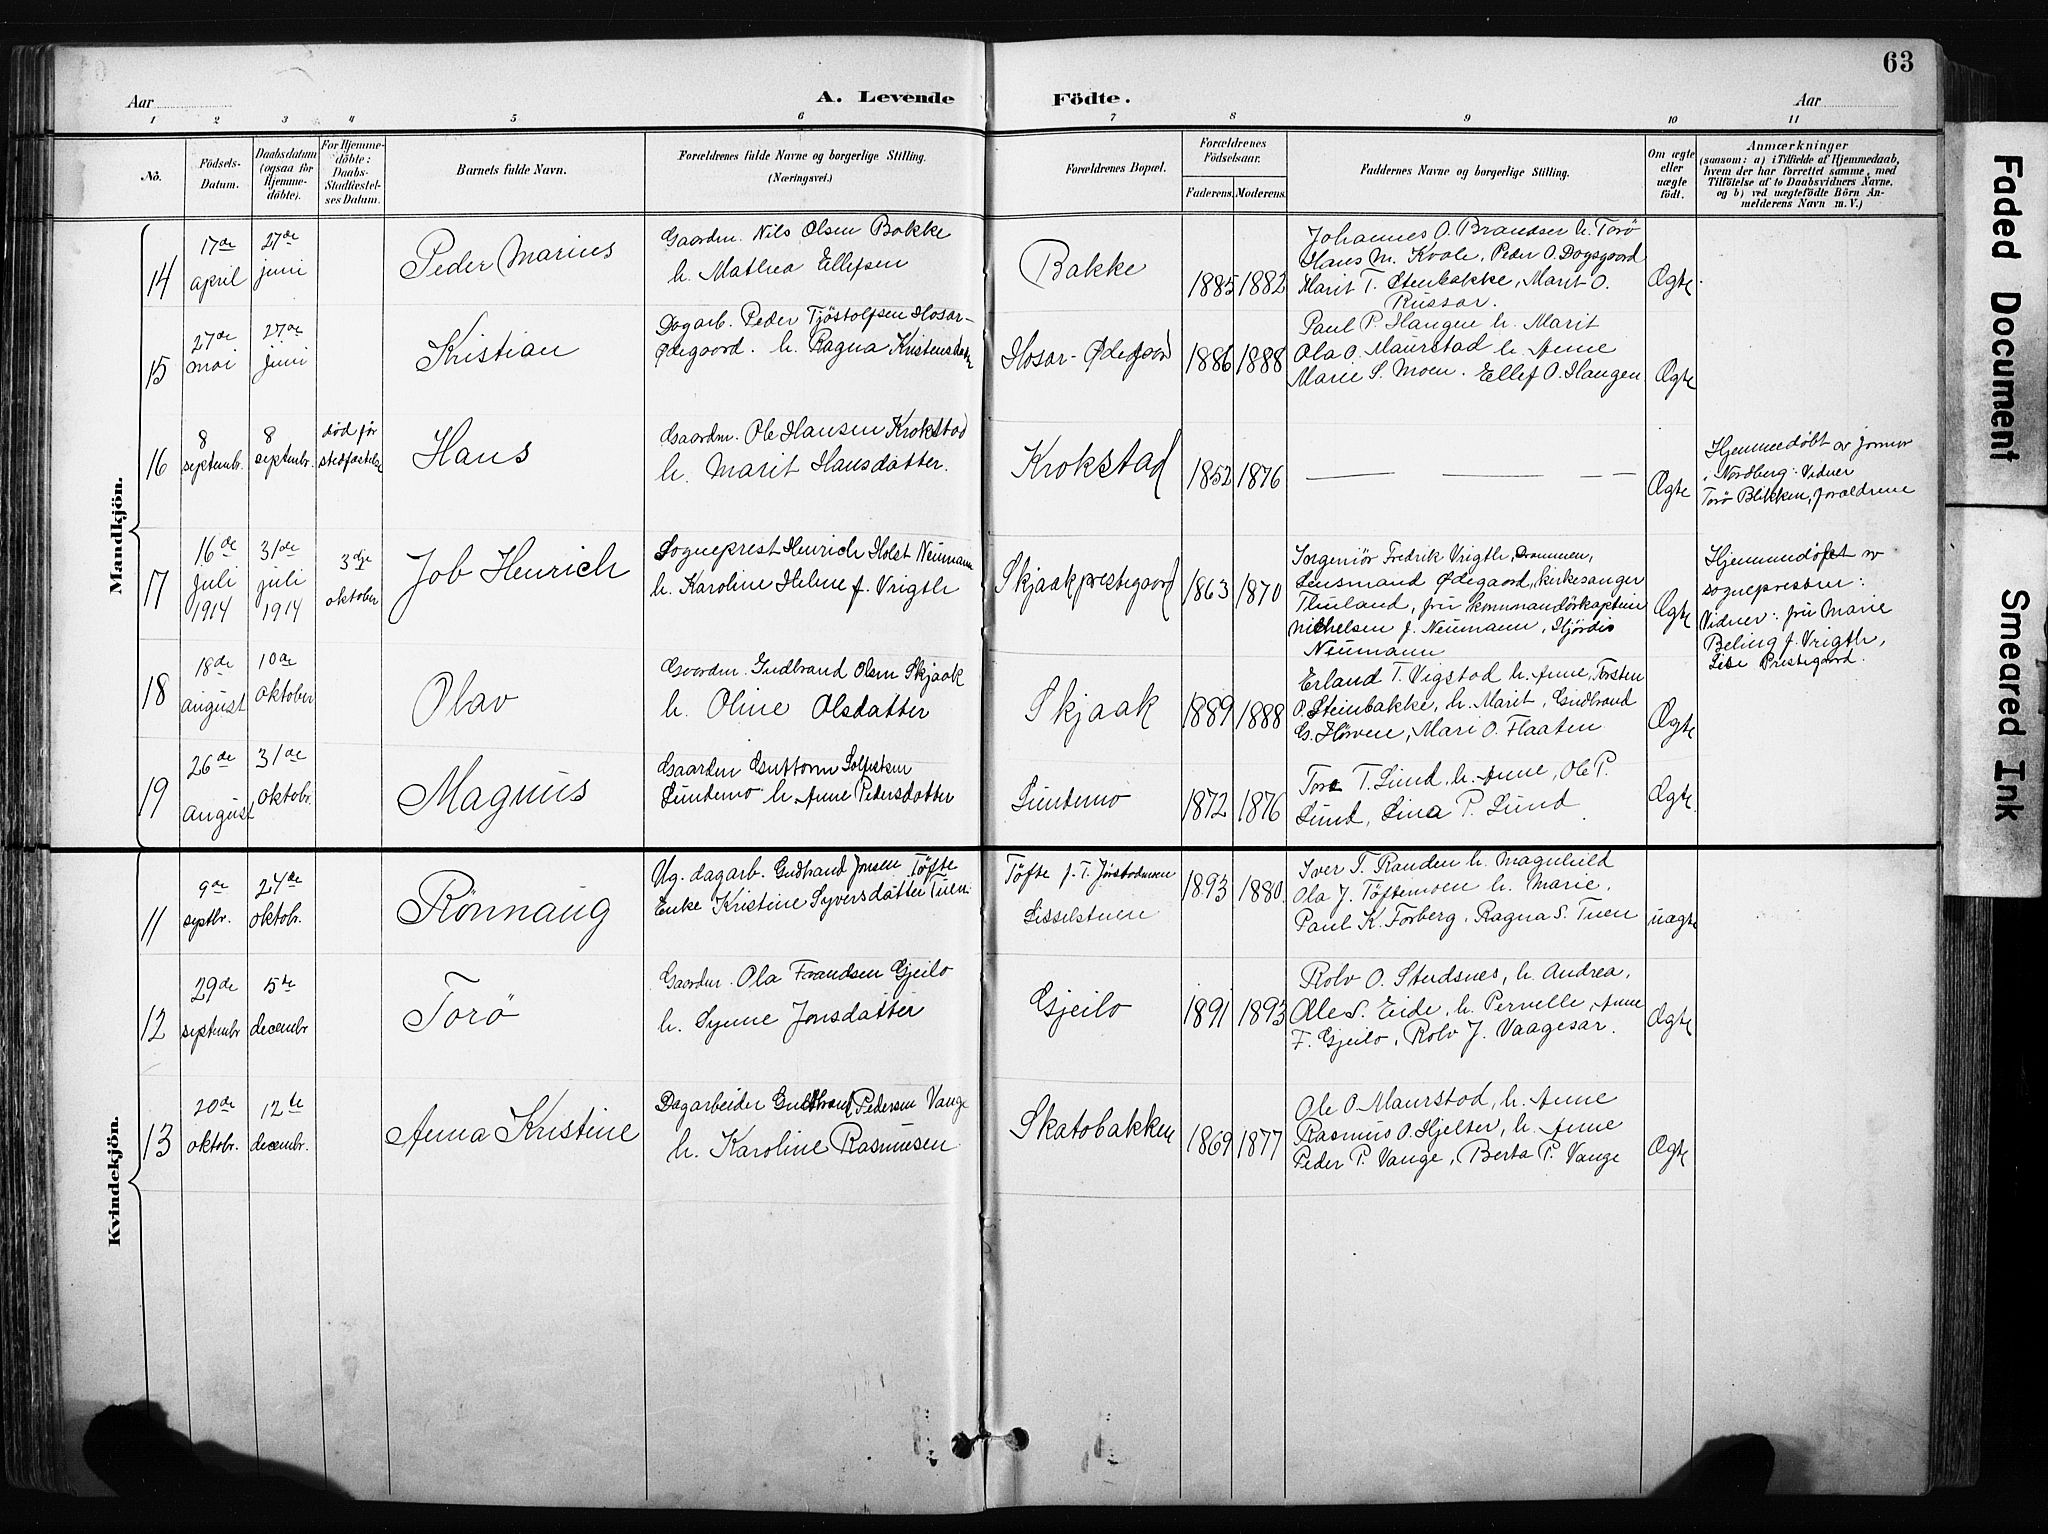 63
Aar
A. Levende Födte.
Aar
1 2 3 4 5 6 7 8 9 10 11
No.
Födsels-
Datum.
Daabsdatum
(ogsaa for
Hjemme-
döbte).
For Hjemme-
döbte:
Daabs-
Stadfæstel-
ses Datum.
Barnets fulde Navn.
Forældrenes fulde Navne og borgerlige Stilling.
(Næringsvei.)
Forældrenes Bopæl.
Forældrenes
Födselsaar.
Faderens. Moderens.
Faddernes Navne og borgerlige Stilling.
Om ægte
eller
uægte
födt.
Anmærkninger
(saasom: a) i Tilfælde af Hjemmedaab,
hvem der har forrettet samme, med
Tilföielse af to Daabsvidners Navne,
og b) ved uægtefödte Börn An-
melderens Navn m. V.)
Mandkjön.
14
17de
april
27de
juni
Peder Marius
Gaardm. Nils Olsen Bakke
h. Mathea Ellefsen
Bakke
1885 1882
Johannes O. Brandser h. Torö
Hans M. Kvale, Peder O. Dagsgaard
Marit T. Stenbakke, Marit O.
Russar.
Ægte
15
27de
mai
27de
juni
Kristian
Dagarb. Peder Tjöstolfsen Hosar-
Ødegaard. h. Ragna Kristensdatr
Hosar-Ødegaard
1886 1888
Paul P. Haugen h. Marit
Ola O. Maurstad h. Anne
Marie S. Moen. Ellef O. Haugen.
Ægte
16
8
septembr.
8
septembr.
död før
stadfæstelse
Hans
Gaardm. Ole Hansen Krokstad
h. Marit Hansdatter.
Krokstad
1852 1876
Ægte
Hjemmedøbt av jormor
i Nordberg: Vidner
Torö Blikken, forældrene
17
16de
juli
1914
31de
juli
1914
3dje
oktober
Job Henrich
Sogneprest Henrich Holst Neumann
h. Karoline Helene f. Vrigth
Skjaakprestegaard
1863 1870
Ingeniör Fredrik Vrigth, Drammen,
Lensmand Ødegaard, kirkesanger
Thuland, fru kommandörkaptein
Michelsen f. Neumann, Hjördis
Neumann
Ægte
Hjemmedøbt av
sognepresten:
Vidner: fru Marie
Beling f. Vrigth,
Lise Prestegaard.
18
18de
august
10de
oktober
Olav
Gaardm. Gudbrand Olsen Skjaak
h. Oline Olsdatter
Skjaak
1889 1888
Erland T. Vigstad h. Anne, Torsten
O. Steinbakke, h. Marit, Gudbrand
G. Hörven, Mari O. Flaaten
Ægte
19
26de
august
31de
oktobr.
Magnus
Gaardm Guttorm Solfestsen
Lundemo h. Anne Pedersdatter
Lundemo
1872 1876
Tore T. Lund, h. Anne, Ole P.
Lund, Lina P. Lund
Ægte
Kvindekjön.
11
9de
septbr.
24de
oktobr.
Rönnaug
Ug. dagarb. Gudbrand Jonsen Töfte
Enke Kristine Syversdatter Tuen.
Töfte f. T. Jörstadmoen
Lisselstuen
1893 1880.
Iver T. Randen h. Magnhild
Ola J. Töftemoen h. Marie,
Paul K. Forberg, Ragna S. Tuen
uægte
12
29de
septembr
5te
decembr
Torö
Gaardm. Ola Frandsen Gjeilo
h. Synne Jonsdatter
Gjeilo
1891 1893
Rolv O. Studsnes, h. Andrea,
Ole S. Eide, h. Pernelle, Anne
F. Gjeilo, Rolv J. Vaagesar.
Ægte
13
20de
oktobr.
12te
decembr.
Anna Kristine
Dagarbeider Gudbrand Pedersen Vange
h. Karoline Rasmusen
Skatobakken
1869 1877
Ole O Maurstad, h. Anne
Rasmus O. Hjelter, h. Anne
Peder P. Vange, Berta P. Vange
Ægte
Faded Document
Smeared Ink